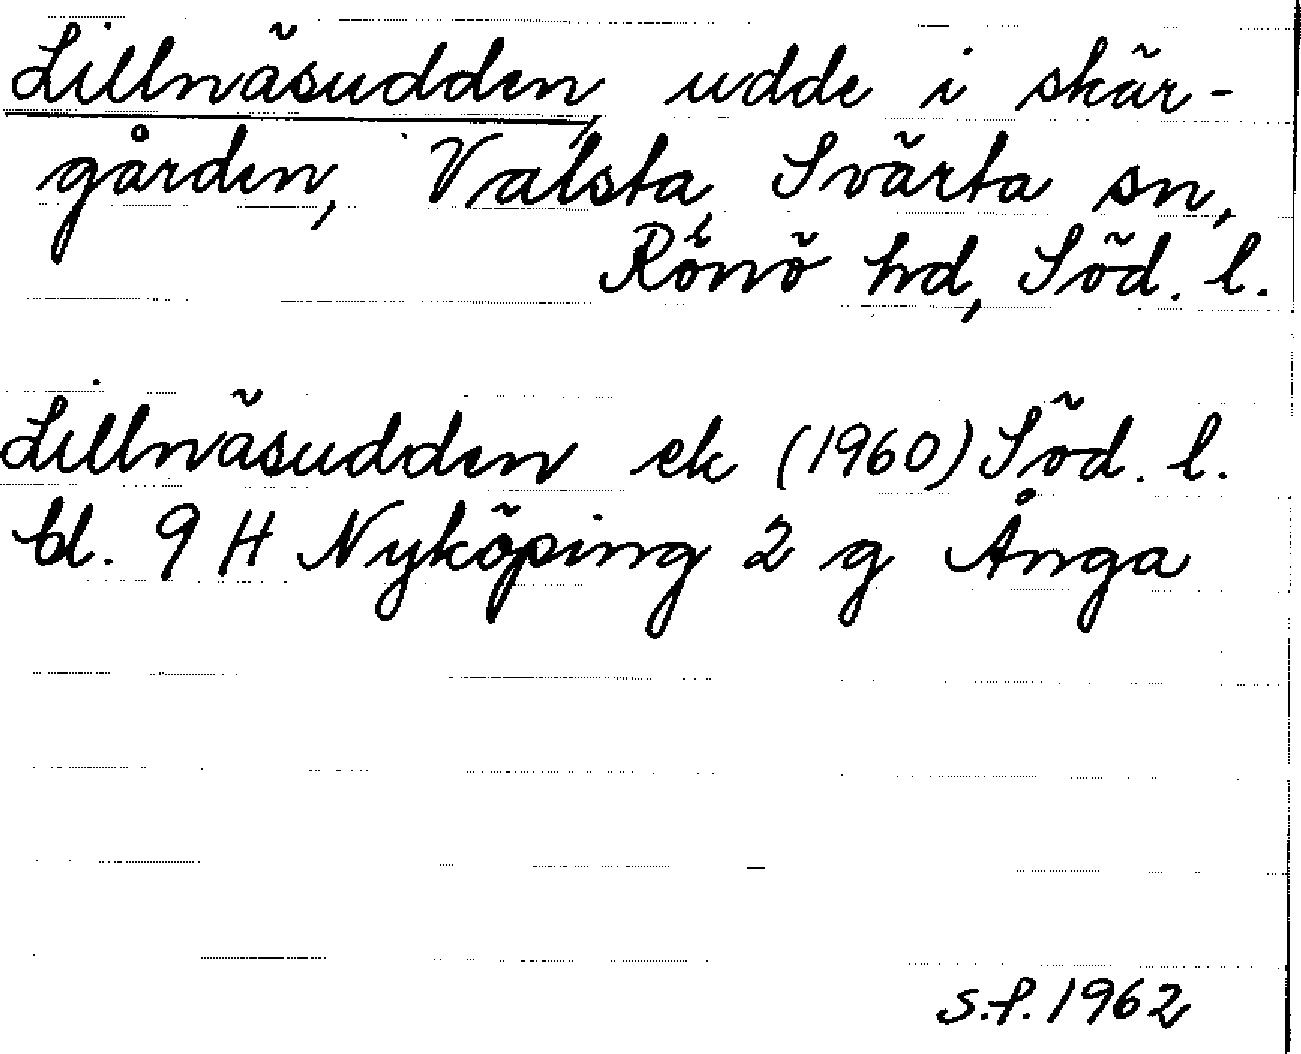 Lillnäsudden udde i skär-
gården, Valsta, Svärta sn,
Rönö hd, Söd. l.
Lillnäsudden ek (1960) Söd. l.
bl. 9 H Nyköping 2 g Ånga
S.F. 1962